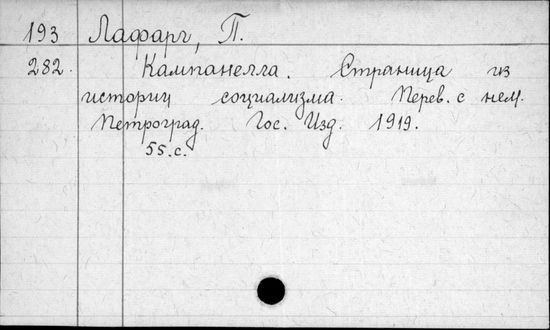 193 Лафарг, П.
282. Кампанелла. Страница из
истории социализма. Перев. с нем.
Петроград. Гос. Изд. 1919.
55.с.